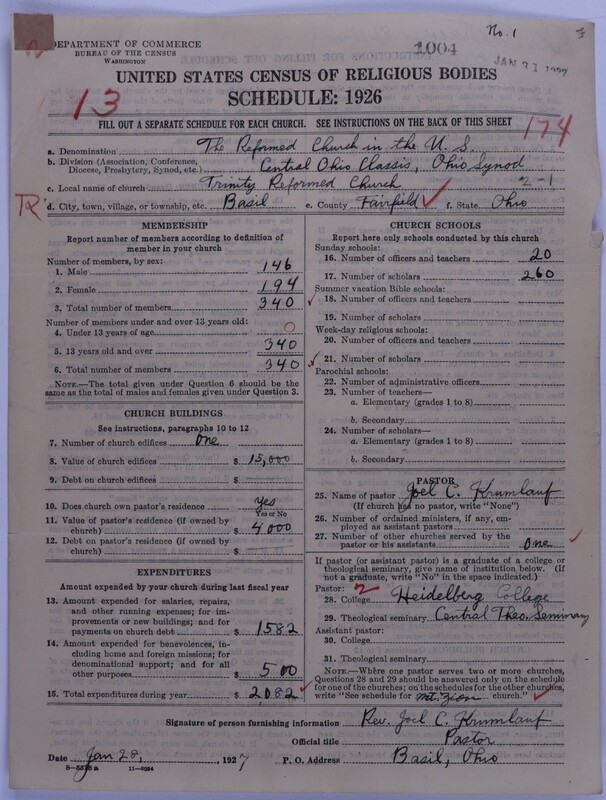 No. 1
DEPARTMENT OF COMMERCE
BUREAU OF THE CENSUS
WASHINGTON
1004
JAN 31 1927
UNITED STATES CENSUS OF RELIGIOUS BODIES
SCHEDULE: 1926
13
FILL OUT A SEPARATE SCHEDULE FOR EACH CHURCH. SEE INSTRUCTIONS ON THE BACK OF THIS SHEET
174
a. Denomination The Reformed Church in the U. S.
b. Division (Association, Conference, Diocese, Presbytery, Synod, etc.) Central Ohio Classis, Ohio Synod
c. Local name of church Trinity Reformed Church 2-1
d. City, town, village, or township, etc. Basil e. County Fairfield f. State Ohio
MEMBERSHIP
Report number of members according to definition of
member in your church
Number of members, by sex:
1. Male 146
2. Female 194
3. Total number of members 340
Number of members under and over 13 years old:
4. Under 13 years of age 0
5. 13 years old and over 340
6. Total number of members 340
NOTE.—The total given under Question 6 should be the
same as the total of males and females given under Question 3.
CHURCH BUILDINGS
See instructions, paragraphs 10 to 12
7. Number of church edifices one
8. Value of church edifices $ 15,000
9. Debt on church edifices $
10. Does church own pastor's residence? yes
Yes or No
11. Value of pastor's residence (if owned by
church) $ 4000
12. Debt on pastor's residence (if owned by
church) $
EXPENDITURES
Amount expended by your church during last fiscal year
13. Amount expended for salaries, repairs,
and other running expenses; for im-
provements or new buildings; and for
payments on church debt $ 1582
14. Amount expended for benevolences, in-
cluding home and foreign missions; for
denominational support; and for all
other purposes $ 500
15. Total expenditures during year $ 2082
CHURCH SCHOOLS
Report here only schools conducted by this church
Sunday schools:
16. Number of officers and teachers 20
17. Number of scholars 260
Summer vacation Bible schools:
18. Number of officers and teachers
19. Number of scholars
Week-day religious schools:
20. Number of officers and teachers
21. Number of scholars
Parochial schools:
22. Number of administrative officers
23. Number of teachers—
a. Elementary (grades 1 to 8)
b. Secondary
24. Number of scholars—
a. Elementary (grades 1 to 8)
b. Secondary
PASTOR
25. Name of pastor Joel C. Krumlauf
(If church has no pastor, write "None")
26. Number of ordained ministers, if any, em-
ployed as assistant pastors
27. Number of other churches served by the
pastor or his assistants One
If pastor (or assistant pastor) is a graduate of a college or
theological seminary, give name of institution below. (If
not a graduate, write "No" in the space indicated.)
Pastor: 2
28. College Heidelberg College
29. Theological seminary Central Theo. Seminary
Assistant pastor:
30. College
31. Theological seminary
NOTE.—Where one pastor serves two or more churches,
Questions 28 and 29 should be answered only on the schedule
for one of the churches; on the schedules for the other churches,
write "See schedule for Mt. Zion church."
Signature of person furnishing information Rev. Joel C. Krumlauf
Official title Pastor
Date Jan 28, 1927 P. O. Address Basil, Ohio